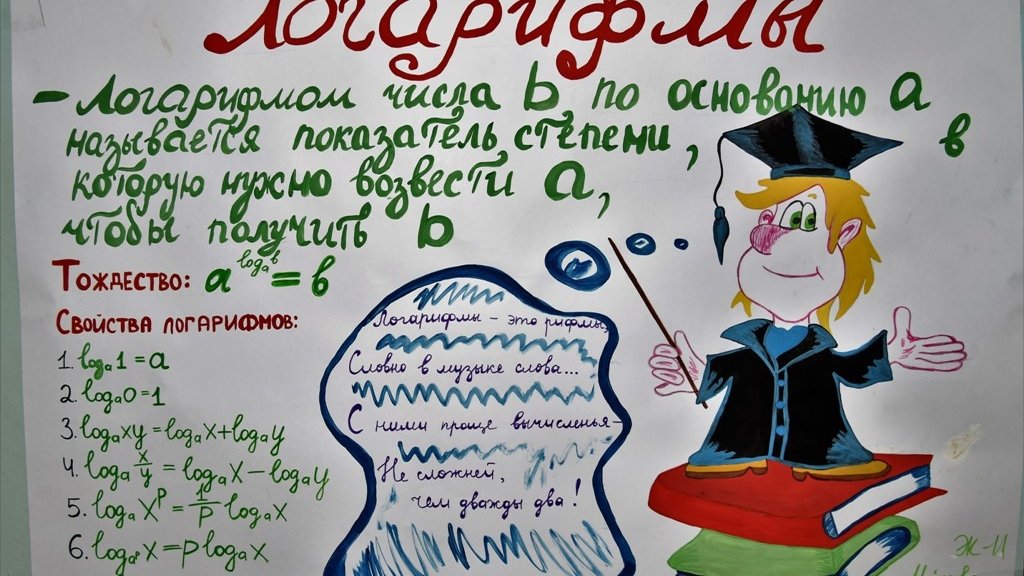 Логарифмы
- Логарифмом числа b по основанию a
называется показатель степени, в
которую нужно возвести a,
чтобы получить b
Тождество: a^logₐв = в
Свойства логарифмов:
1. logₐ1 = a
2. logₐ0 = 1
3. logₐxy = logₐx + logₐy
4. logₐ x/y = logₐx - logₐy
5. logₐx^p = 1/p logₐx
6. log x = p logₐx
Логарифмы - это рифмы,
Словно в музыке слова...
С ними проще вычисленья -
Не сложней,
чем дважды два!
Ж-11